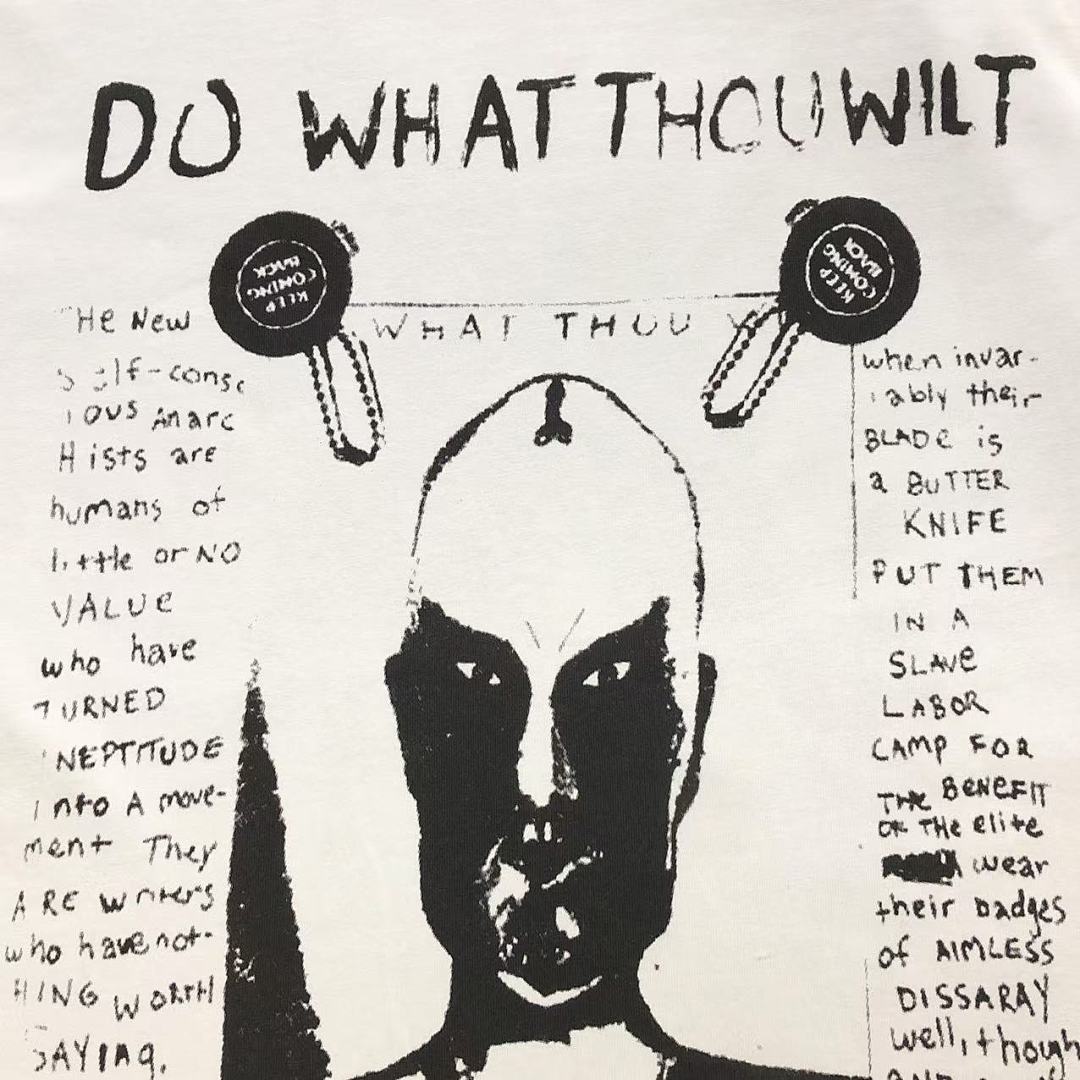 DO WHAT THOU WILT
KEEP
COMING
BACK
KEEP
COMING
BACK
WHAT THOU
THe New
Self-consc
ious Anarc
Hists are
humans of
little or NO
VALUE
who have
TURNED
INEPTITUDE
Into A move-
ment They
ARE writers
who have not-
HING WORTH
SAYING.
when invar-
iably their
BLADe is
a BUTTER
KNIFE
PUT THEM
IN A
SLAVe
LABOR
CAMP FOR
THE BENEFIT
OF THe elite
wear
their badges
of AIMLESS
DISSARAY
well, though